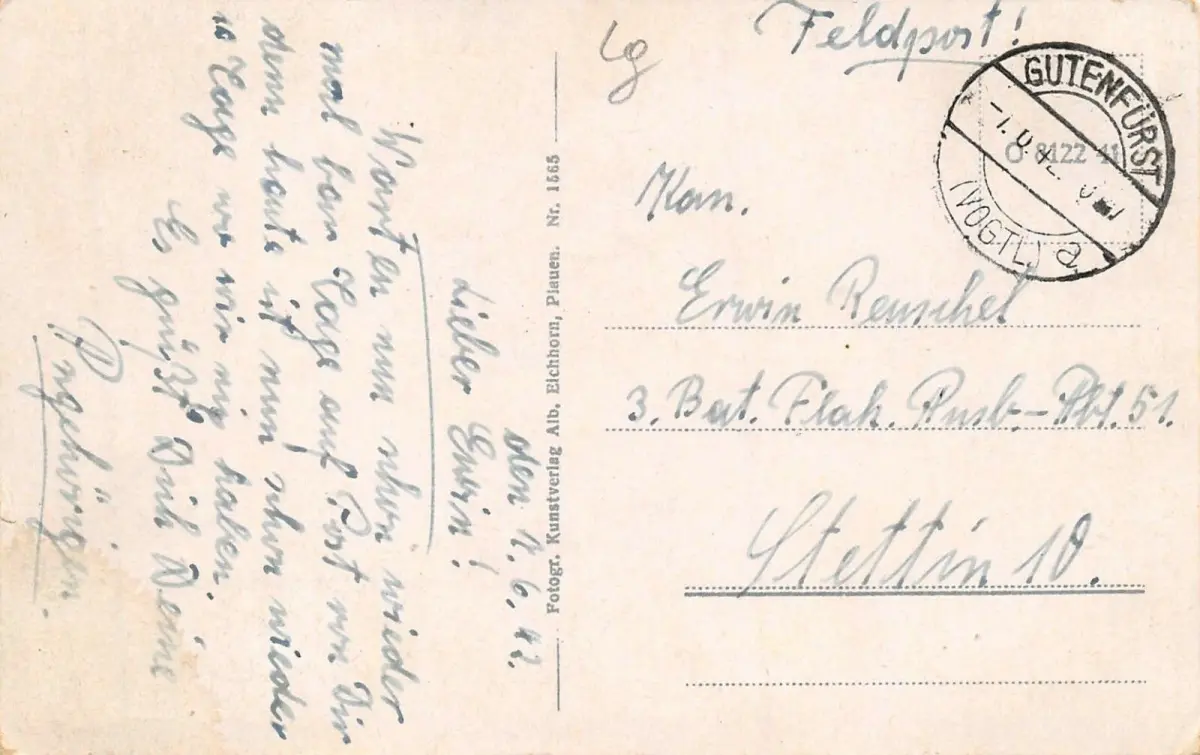 Feldpost!
GUTENFÜRST
(VOGTL) a
O 8122 41
Lg
Kan.
Erwin Reuschel
3. Bat. Flak. Ausb-Abt. 51.
Stettin 10.
Fotogr. Kunstverlag Alb. Eichhorn, Plauen. Nr. 1565
den 1. 6. 42.
Lieber Erwin!
Warten nun schon wieder
mal paar Tage auf Post von Dir
denn heute ist nun schon wieder
10 Tage wo wir nix haben.
Es grüßt Dich Deine
Angehörigen.